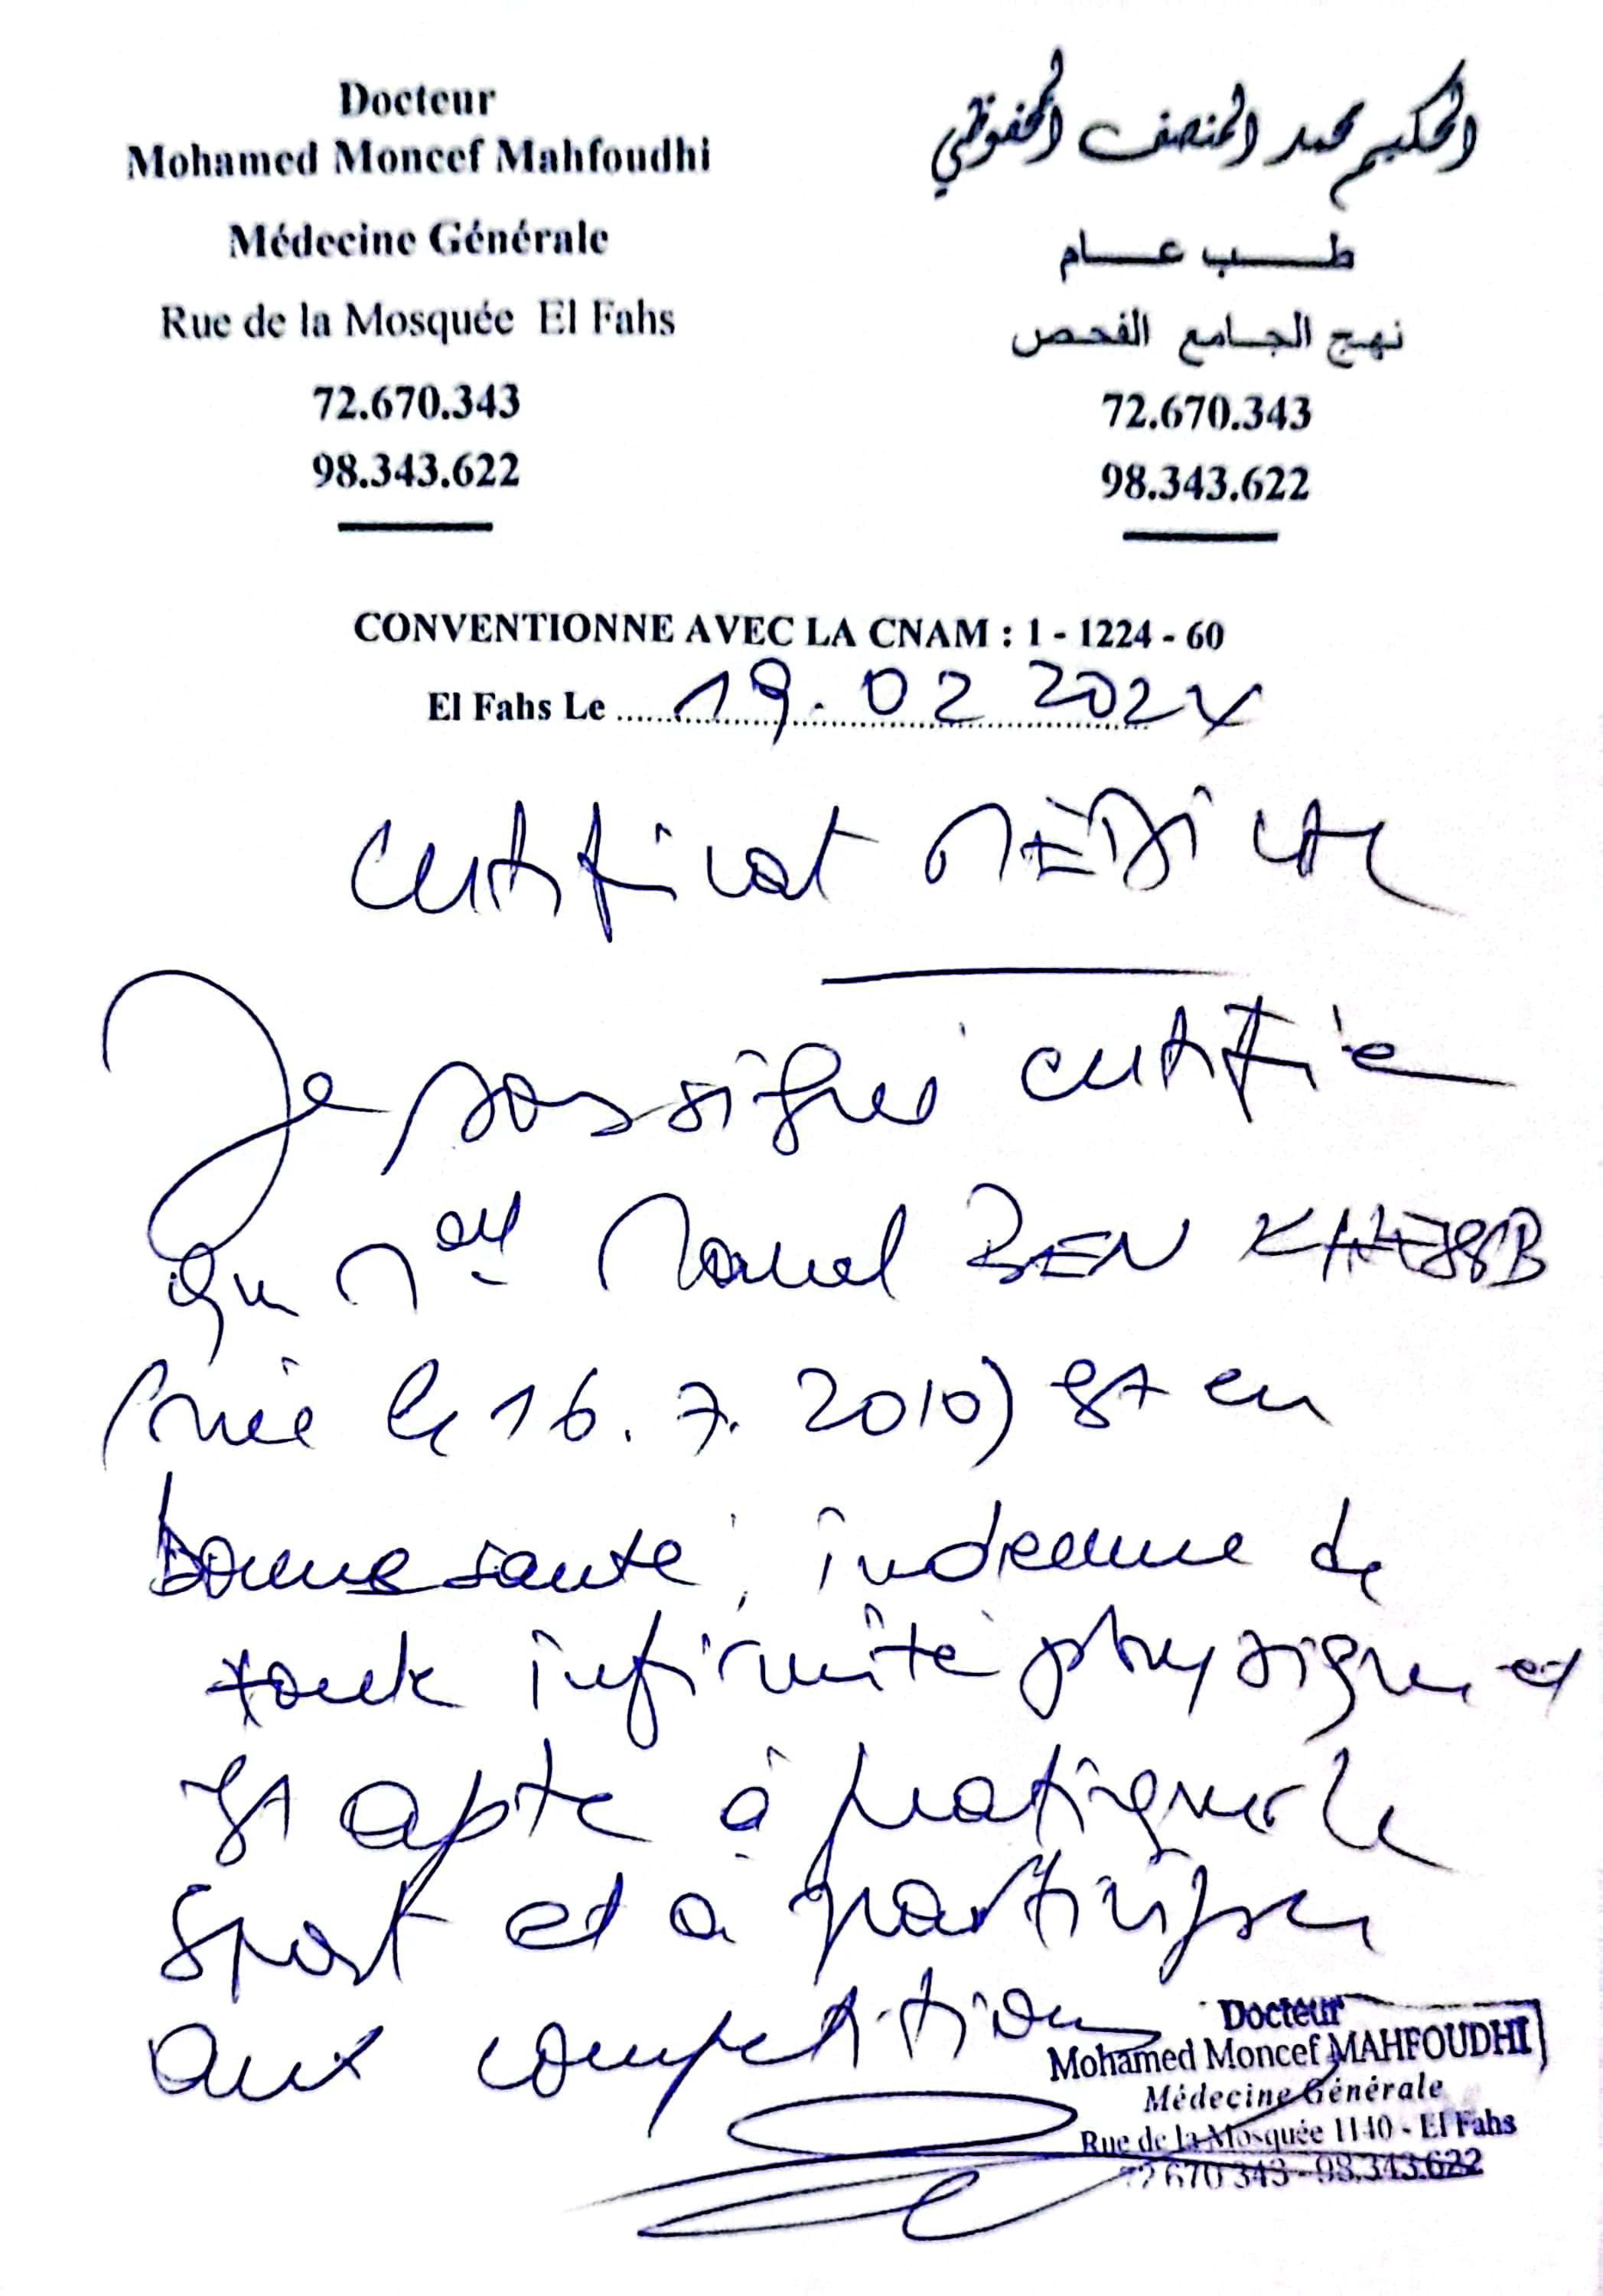 Docteur
Mohamed Moncef Mahfoudhi
Médecine Générale
Rue de la Mosquée El Fahs
72.670.343
98.343.622
الحكيم محمد المنصف المحفوظي
طب عام
نهج الجامع الفحص
72.670.343
98.343.622
CONVENTIONNE AVEC LA CNAM : 1 - 1224 - 60
El Fahs Le 19.02 2024
Certificat MÉDICAL
Je soussigné certifie
que Melle BEN
(née le 16.7.2010) est en
bonne santé, indemne de
toute infirmité physique et
est apte à pratiquer le
sport et à participer
aux compétitions
Docteur
Mohamed Moncef MAHFOUDHI
Médecine Générale
Rue de la Mosquée 1140 - El Fahs
72 670 343 - 98.343.622